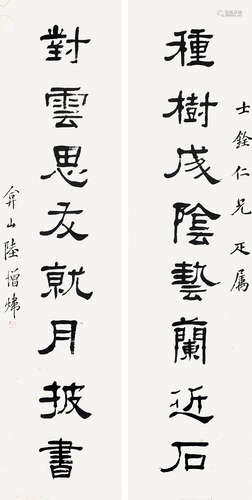 士銓仁兄正屬
種樹成陰藝蘭近石
對雲思友就月披書
弇山陸增煒